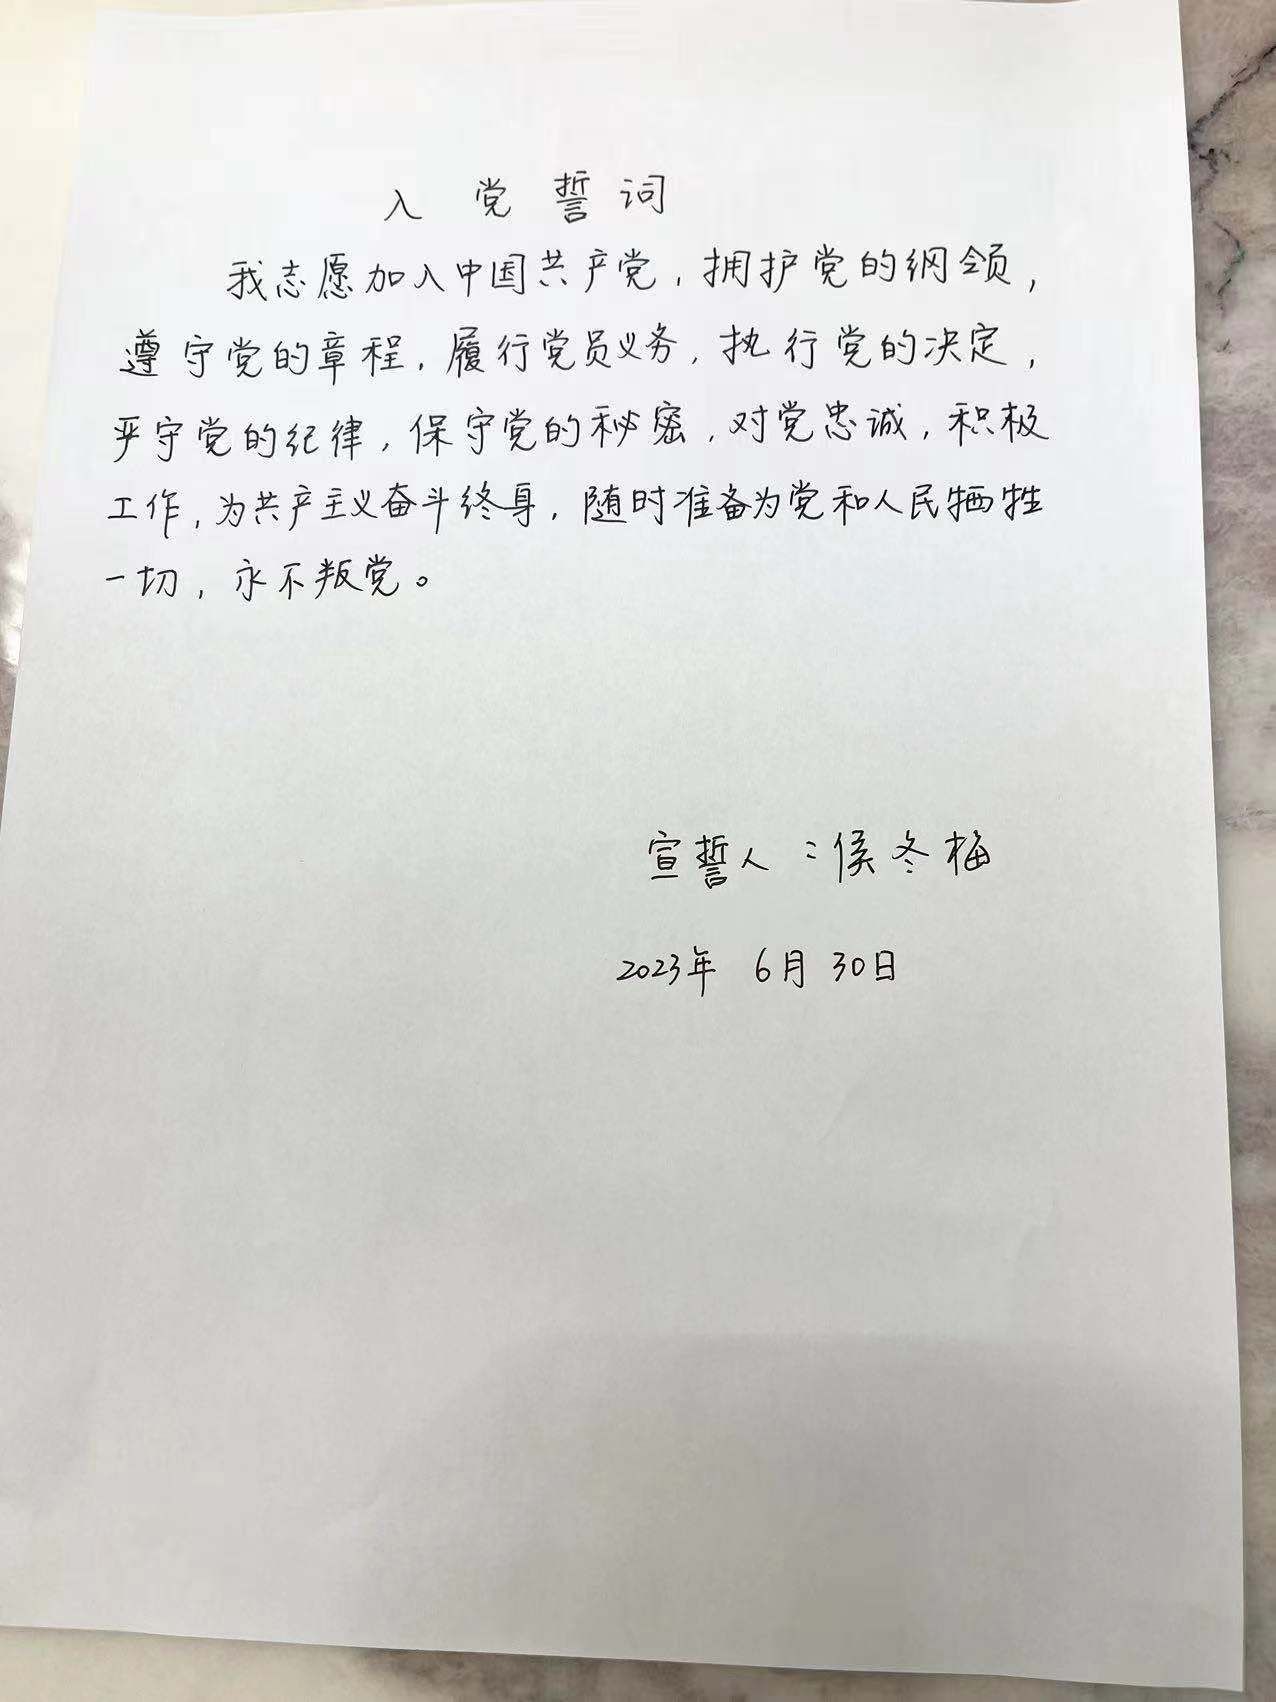 入党誓词
我志愿加入中国共产党，拥护党的纲领，
遵守党的章程，履行党员义务，执行党的决定，
严守党的纪律，保守党的秘密，对党忠诚，积极
工作，为共产主义奋斗终身，随时准备为党和人民牺牲
一切，永不叛党。
宣誓人：侯冬梅
2023年 6月30日